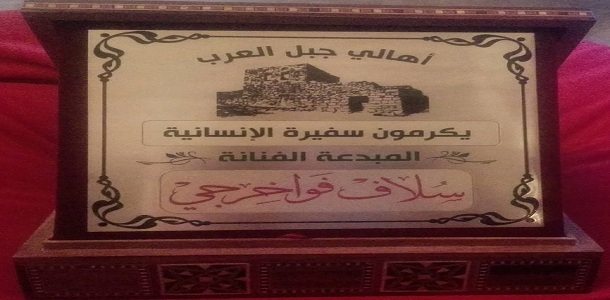 أهالي جبل العرب
يكرمون سفيرة الإنسانية
المبدعة الفنانة
سلاف فواخرجي